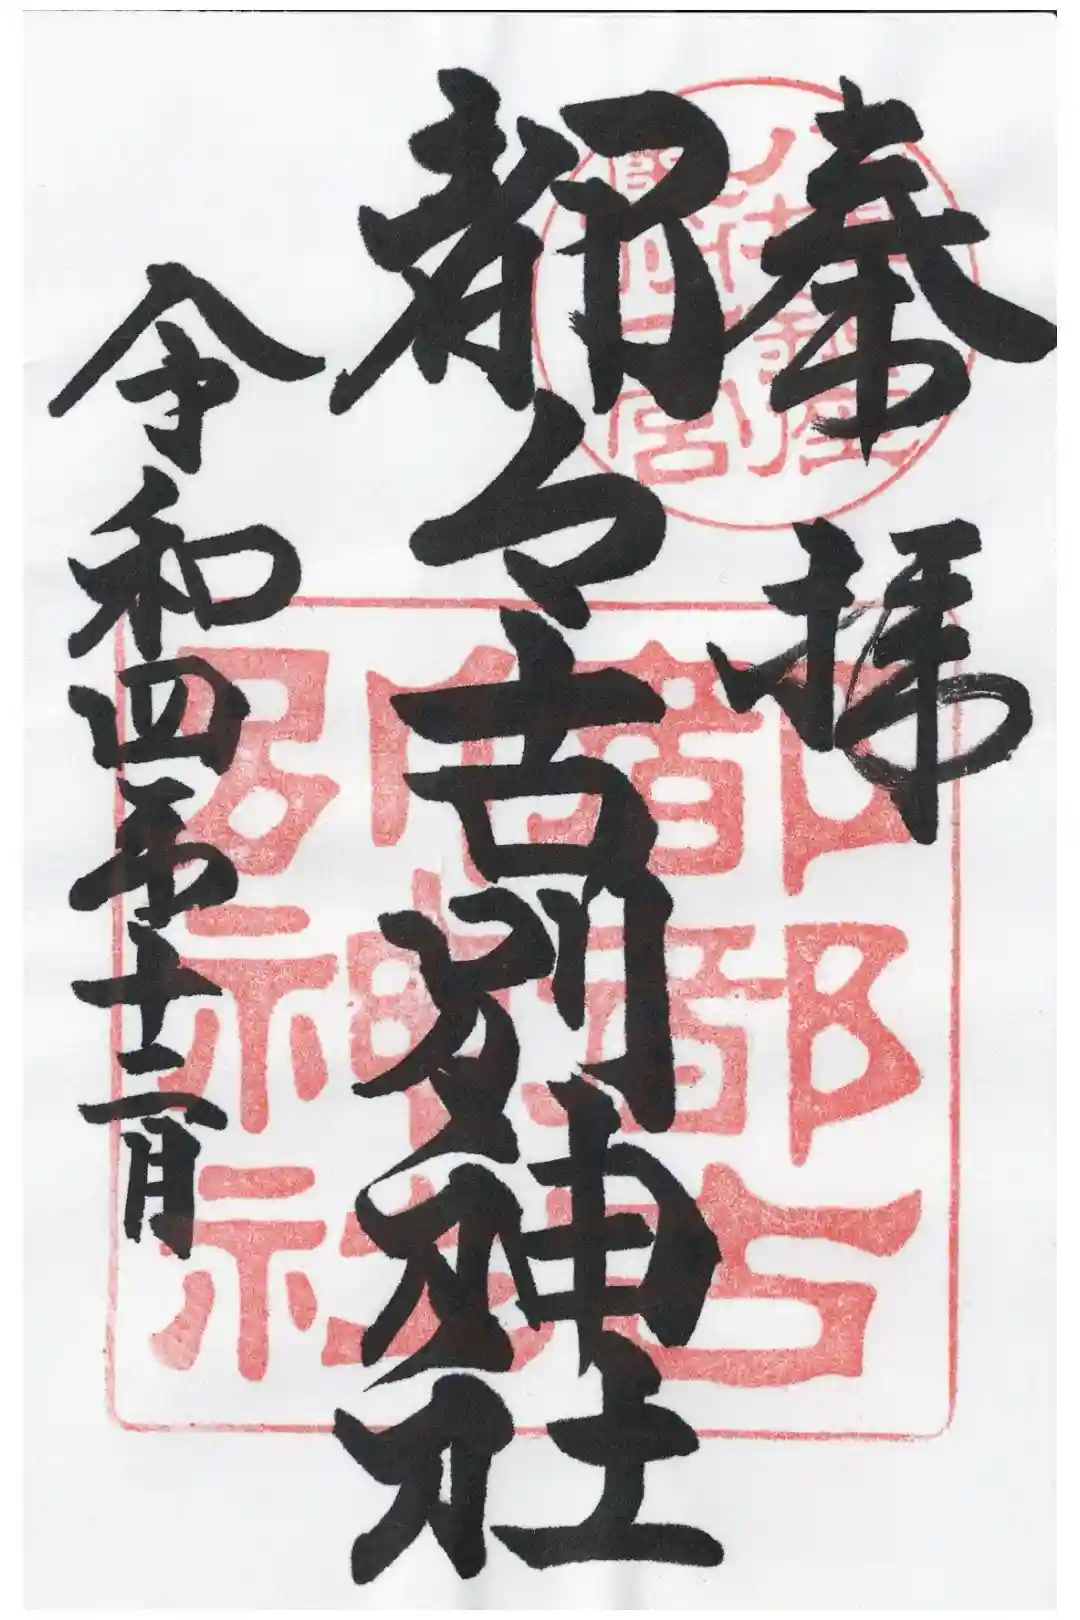 奉拝
都々古別神社
令和四年十二月
都都古
別神社